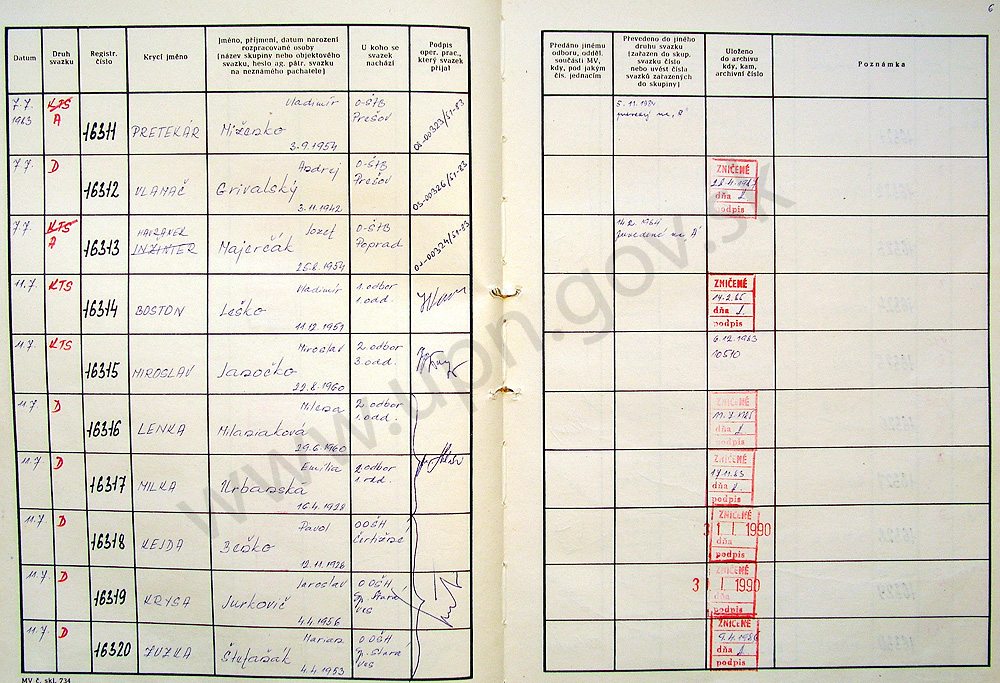 6
Datum
Druh
svazku
Registr.
číslo
Krycí jméno
Jméno, příjmení, datum narození
rozpracované osoby
(název skupiny nebo objektového
svazku, heslo ag. pátr. svazku
na neznámého pachatele)
U koho se
svazek
nachází
Podpis
oper. prac.,
který svazek
přijal
Předáno jinému
odboru, odděl.
součásti MV,
kdy, pod jakým
čís. jednacím
Převedeno do jiného
druhu svazku
(zařazen do skup.
svazku číslo
nebo uvést čísla
svazků zařazených
do skupiny)
Uloženo
do archivu
kdy, kam,
archivní číslo
Poznámka
7.7.
1983
KTS
A
16311
PRETEKÁR
Vladimír
Miženko
3.9.1954
O-ŠTB
Prešov
OS-00323/51-83
5.11.1984
7.7.
D
16312
VLAMAČ
Andrej
Grivalský
3.11.1942
O-ŠTB
Prešov
OS-00326/51-83
ZNIČENÉ
dňa
podpis
7.7.
KTS
A
16313
HAVRANER
INŽINIER
Jozef
Majerčák
25.8.1954
O-ŠTB
Poprad
OS-00324/51-83
zavedené na A
11.7.
KTS
16314
BOSTON
Vladimír
Leško
11.12.1951
1. odbor
1. odd.
ZNIČENÉ
14.2.85
dňa
podpis
11.7.
KTS
16315
MIROSLAV
Miroslav
Janočko
22.8.1960
2. odbor
3. odd.
6.12.1983
10510
11.7.
D
16316
LENKA
Milena
Milaniaková
29.6.1960
2. odbor
1. odd.
ZNIČENÉ
dňa
podpis
11.7.
D
16317
MILKA
Emília
Urbanská
16.4.1928
2. odbor
1. odd.
ZNIČENÉ
17.11.83
dňa
podpis
11.7.
D
16318
KEJDA
Pavol
Beňko
12.11.1926
OOŠH
ZNIČENÉ
31. I. 1990
dňa
podpis
11.7.
D
16319
KRYSA
Jaroslav
Jurkovič
4.4.1956
OOŠH
Sp. Stará
Ves
ZNIČENÉ
31. I. 1990
podpis
11.7.
D
16320
ZUZKA
Marian
Štefaňák
4.4.1953
OOŠH
Sp. Stará
Ves
ZNIČENÉ
dňa
podpis
MV č. skl. 734
www.upn.gov.sk